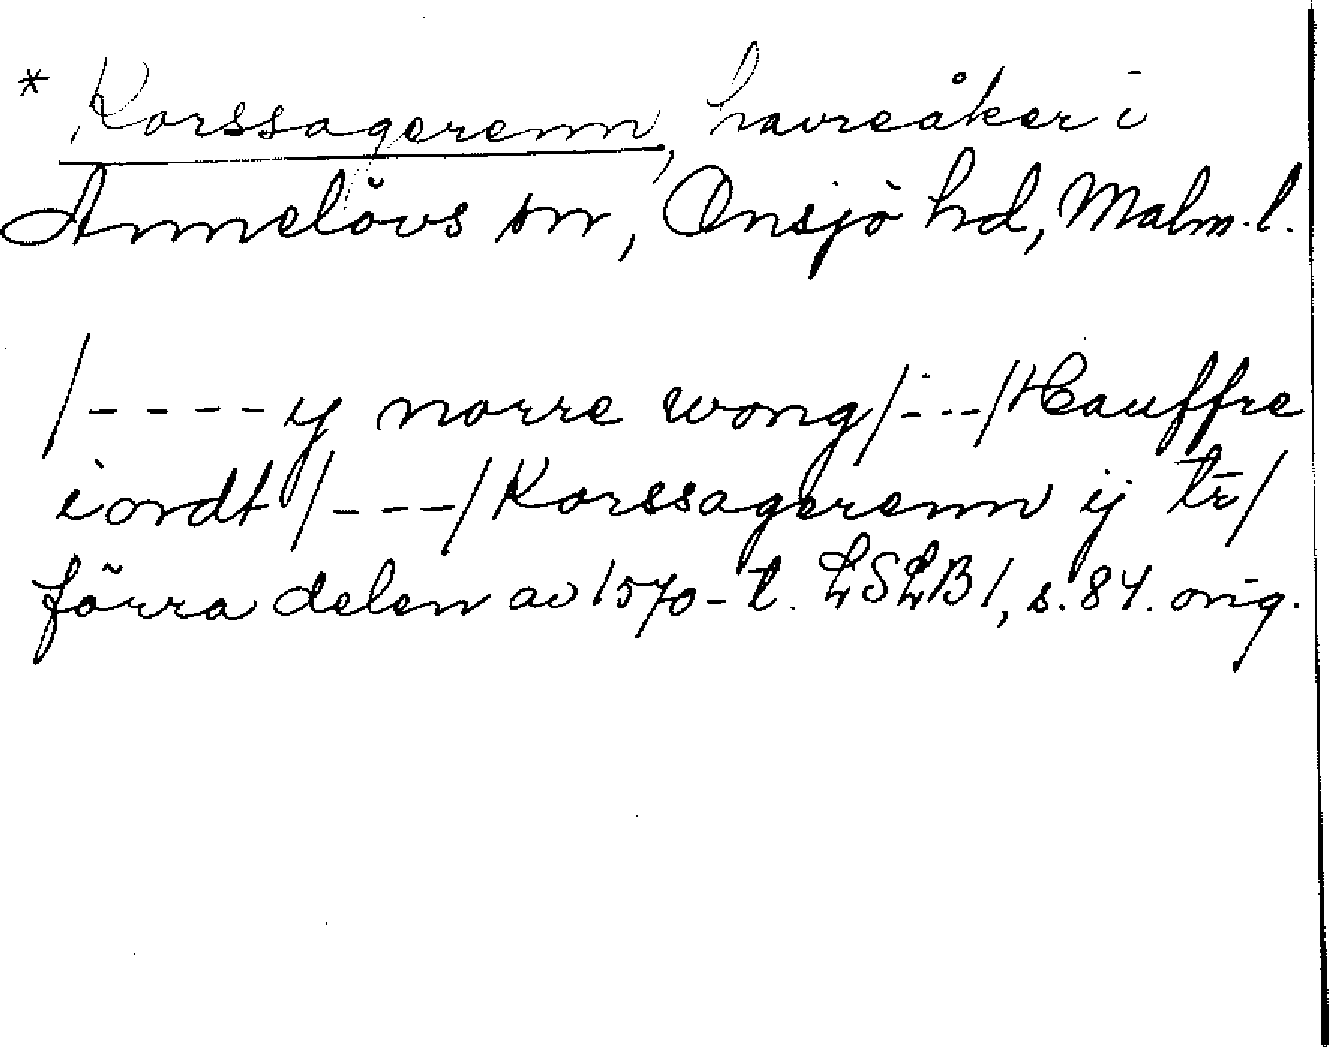 * Korssagerenn, havreåker i
Annelövs sn, Onsjö hd, Malm. l.
/----y norre wong/---/Hauffre
iordt/---/Korssagerenn ij tr/
förra delen av 1570-t. LSLB1, s. 84. orig.